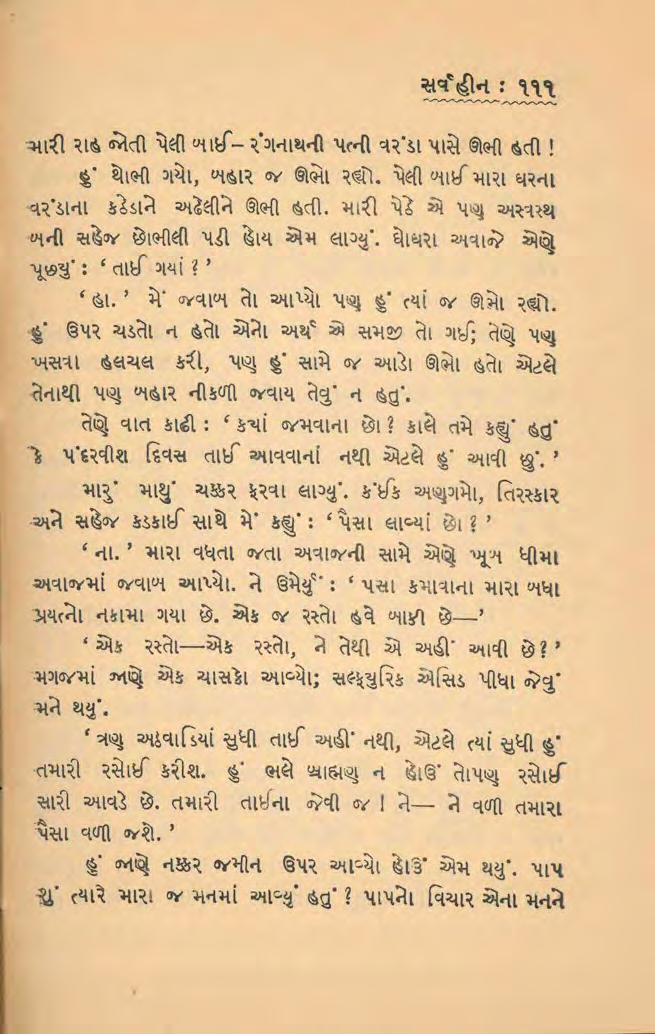 સર્વહીન : ૧૧૧
મારી રાહ જોતી પેલી બાઈ– રંગનાથની પત્ની વરંડા પાસે ઊભી હતી !
હું થોભી ગયો, બહાર જ ઊભો રહ્યો. પેલી બાઈ મારા ઘરના
વરંડાના કઠેડાને અઢેલીને ઊભી હતી. મારી પેઠે એ પણ અસ્વસ્થ
બની સહેજ છોભીલી પડી હોય એમ લાગ્યું. ઘોઘરા અવાજે એણે
પૂછ્યું : ‘ તાઈ ગયાં ? ’
‘ હા. ’ મેં જવાબ તો આપ્યો પણ હું ત્યાં જ ઊભો રહ્યો.
હું ઉપર ચડતો ન હતો એનો અર્થ એ સમજી તો ગઈ; તેણે પણ
ખસવા હલચલ કરી, પણ હું સામે જ આડો ઊભો હતો એટલે
તેનાથી પણ બહાર નીકળી જવાય તેવું ન હતું.
તેણે વાત કાઢી : ‘ કયાં જમવાના છો ? કાલે તમે કહ્યું હતું
કે પંદરવીશ દિવસ તાઈ આવવાનાં નથી એટલે હું આવી છું. ’
મારું માથું ચક્કર ફરવા લાગ્યું. કંઈક અણગમો, તિરસ્કાર
અને સહેજ કડકાઈ સાથે મેં કહ્યું : ‘ પૈસા લાવ્યાં છો ? ’
‘ ના. ’ મારા વધતા જતા અવાજની સામે એણે ખૂબ ધીમા
અવાજમાં જવાબ આપ્યો. ને ઉમેર્યું : ‘ પસા કમાવાના મારા બધા
પ્રયત્નો નકામા ગયા છે. એક જ રસ્તો હવે બાકી છે—’
‘ એક રસ્તો—એક રસ્તો, ને તેથી એ અહીં આવી છે ? ’
મગજમાં જાણે એક ચાસકો આવ્યો; સલ્ફ્યુરિક એસિડ પીધા જેવું
મને થયું.
‘ ત્રણ અઠવાડિયાં સુધી તાઈ અહીં નથી, એટલે ત્યાં સુધી હું
તમારી રસોઈ કરીશ. હું ભલે બ્રાહ્મણ ન હોઉં તોપણ રસોઈ
સારી આવડે છે. તમારી તાઈના જેવી જ ! ને— ને વળી તમારા
પૈસા વળી જશે. ’
હું જાણે નક્કર જમીન ઉપર આવ્યો હોઉં એમ થયું. પાપ
શું ત્યારે મારા જ મનમાં આવ્યું હતું ? પાપનો વિચાર એના મનને